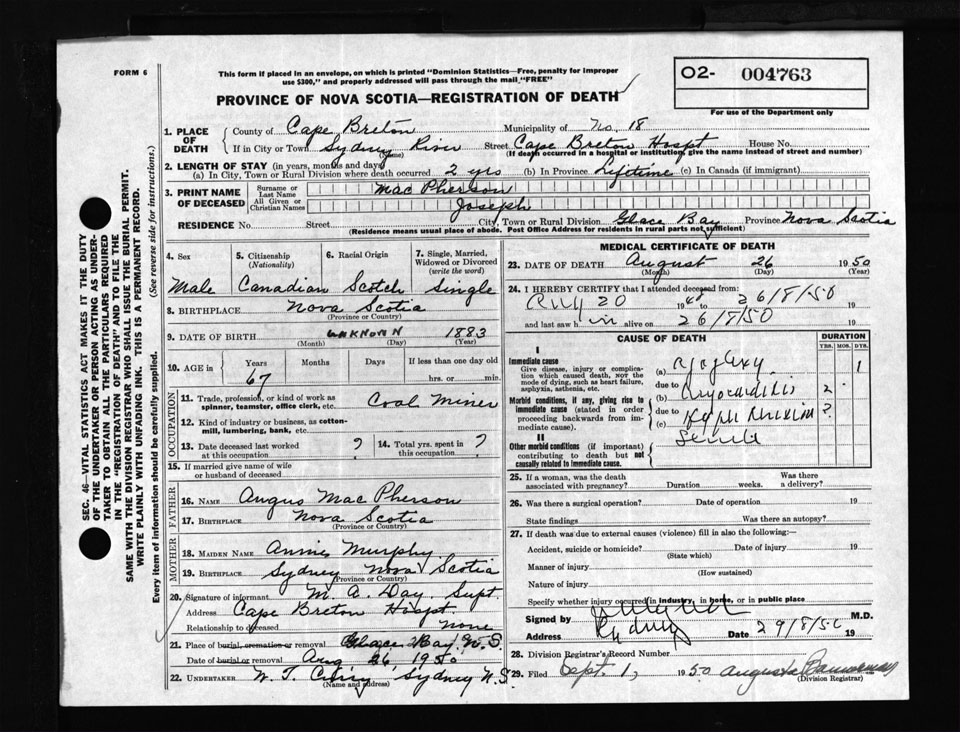 FORM 6
This form if placed in an envelope, on which is printed "Dominion Statistics—Free, penalty for improper
use $300," and properly addressed will pass through the mail "FREE"
PROVINCE OF NOVA SCOTIA—REGISTRATION OF DEATH
O2- 004763
For use of the Department only
SEC. 46—VITAL STATISTICS ACT MAKES IT THE DUTY
OF THE UNDERTAKER OR PERSON ACTING AS UNDER-
TAKER TO OBTAIN ALL THE PARTICULARS REQUIRED
IN THE "REGISTRATION OF DEATH" AND TO FILE THE
SAME WITH THE DIVISION REGISTRAR WHO SHALL ISSUE THE BURIAL PERMIT.
WRITE PLAINLY WITH UNFADING INK. THIS IS A PERMANENT RECORD.
Every item of information should be carefully supplied. (See reverse side for instructions.)
1. PLACE OF DEATH
County of Cape Breton Municipality of No. 18
If in City or Town Sydney River Street Cape Breton Hospt House No.
(Name) (If death occurred in a hospital or institution, give the name instead of street and number)
2. LENGTH OF STAY (in years, months and days)
(a) In City, Town or Rural Division where death occurred 2 yrs (b) In Province Lifetime (c) In Canada (if immigrant)
3. PRINT NAME OF DECEASED
Surname or Last Name MacPherson
All Given or Christian Names Joseph
RESIDENCE No. Street City, Town or Rural Division Glace Bay Province Nova Scotia
(Residence means usual place of abode. Post Office Address for residents in rural parts not sufficient)
4. Sex
Male
5. Citizenship (Nationality)
Canadian
6. Racial Origin
Scotch
7. Single, Married, Widowed or Divorced (write the word)
Single
8. BIRTHPLACE Nova Scotia
(Province or Country)
9. DATE OF BIRTH UNKNOWN 1883
(Month) (Day) (Year)
10. AGE in Years Months Days If less than one day old
67 hrs. or min.
OCCUPATION
11. Trade, profession, or kind of work as
spinner, teamster, office clerk, etc. Coal Miner
12. Kind of industry or business, as cotton-
mill, lumbering, bank, etc.
13. Date deceased last worked
at this occupation ?
14. Total yrs. spent in
this occupation ?
15. If married give name of wife
or husband of deceased
FATHER
16. NAME Angus MacPherson
17. BIRTHPLACE Nova Scotia
(Province or Country)
MOTHER
18. MAIDEN NAME Annie Murphy
19. BIRTHPLACE Sydney Nova Scotia
(Province or Country)
20. Signature of informant M. A. Day, Supt.
Address Cape Breton Hospt.
Relationship to deceased none
21. Place of burial, cremation or removal Glace Bay, N.S.
Date of burial or removal Aug 26, 1950
22. UNDERTAKER W. T. Curry, Sydney N.S
(Name and address)
MEDICAL CERTIFICATE OF DEATH
23. DATE OF DEATH August 26 1950
(Month) (Day) (Year)
24. I HEREBY CERTIFY that I attended deceased from:
20 1948 to 26/8/50 19
and last saw him alive on 26/8/50 19
CAUSE OF DEATH
DURATION
YRS. MOS. DYS.
I
Immediate cause
Give disease, injury or complica-
tion which caused death, NOT the
mode of dying, such as heart failure,
asphyxia, asthenia, etc.
(a) Apoplexy 1
due to
(b) Myocarditis 2
Morbid conditions, if any, giving rise to
immediate cause (stated in order
proceeding backwards from im-
mediate cause).
due to
(c) ?
II
Other morbid conditions (if important)
contributing to death but not
causally related to immediate cause.
Senile
25. If a woman, was the death
associated with pregnancy? Duration weeks. Was there
a delivery?
26. Was there a surgical operation? Date of operation 19
State findings Was there an autopsy?
27. If death was due to external causes (violence) fill in also the following:—
Accident, suicide or homicide? Date of injury 19
(State which)
Manner of injury
(How sustained)
Nature of injury
Specify whether injury occurred in industry, in home, or in public place
Signed by M.D.
Address Sydney Date 29/8/50 19
28. Division Registrar's Record Number
29. Filed Sept. 1, 1950 Augusta
(Division Registrar)